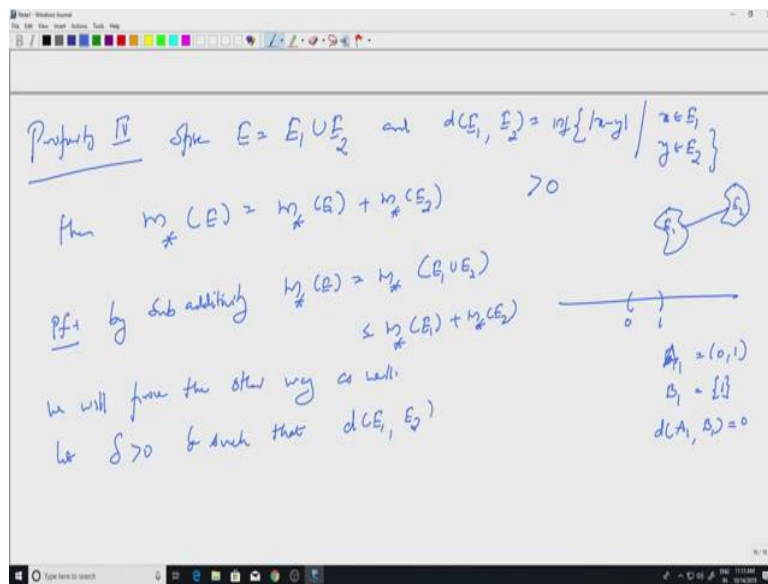 Note1 - Windows Journal
File Edit View Insert Actions Tools Help
Property IV Spse E = E₁ ∪ E₂ and d(E₁, E₂) = inf{|x-y| | x ∈ E₁
y ∈ E₂}
> 0
then m_*(E) = m_*(E) + m_*(E₂)
E₁ E₂
Pf: by Sub additivity m_*(E) = m_*(E₁ ∪ E₂)
≤ m_*(E₁) + m_*(E₂)
0 1
A₁ = (0,1)
B₁ = {1}
d(A₁, B₁) = 0
we will prove the other way as well.
let δ > 0 be such that d(E₁, E₂)
Type here to search
11:11 AM
10/14/2019